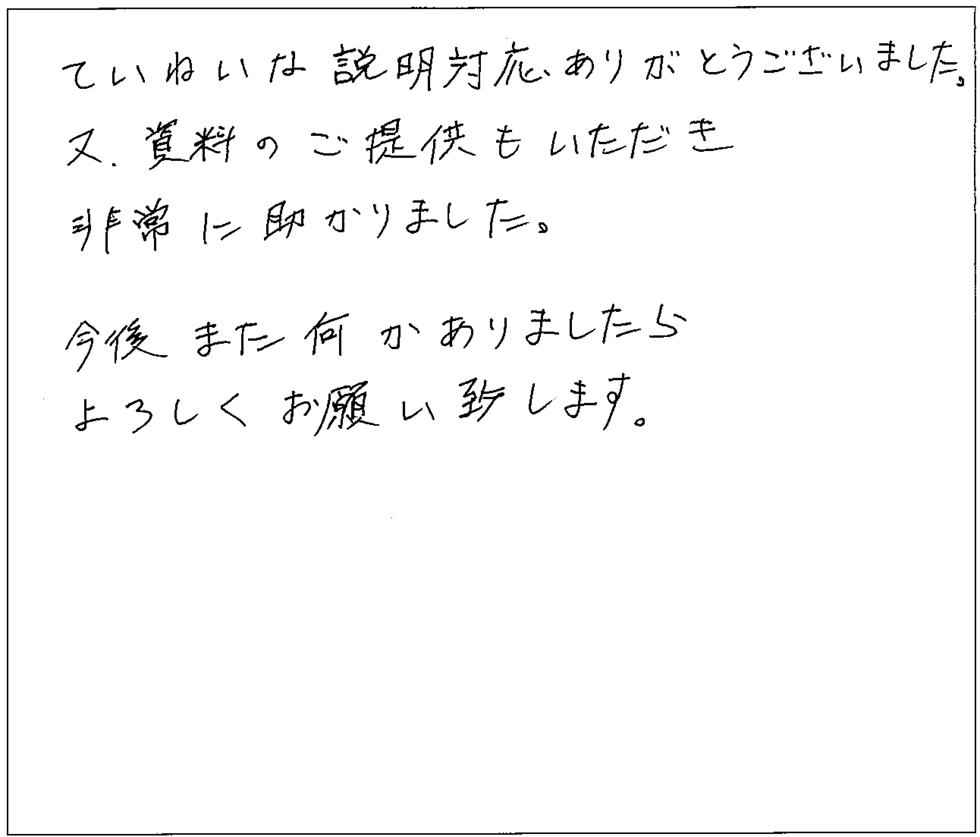 ていねいな説明対応、ありがとうございました。
又、資料のご提供もいただき
非常に助かりました。
今後また何かありましたら
よろしくお願い致します。